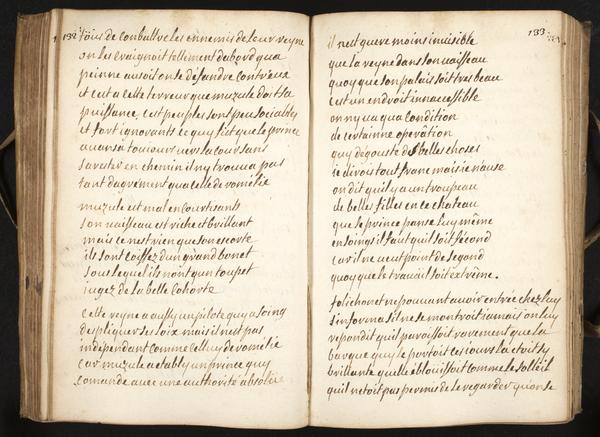 132
tous de conbattre les ennemis de leur reyne
on les craignoit tellement dabord qua
peinne ausoit on se defandre contre eux
et cest a cette terreur que muzule doit sa
puissance, cest peuples sont peu sociables
et fort ignorants ce quy fist que le prince
avansa toujours vers la cour sans
sarester en chemin il ny trouva pas
tant dagrement qua celle de romélie
muzule est mal en courtisants
son vaisseau est riche et brillant
mais ce nest rien que son escorte
ils sont coiffez dun grand bonet
sous lequel ils nont qun toupet
jugez de la belle cohorte
cette reyne a aussy un pilote quy a soing
despliquer ses loix mais il nest pas
independant comme celluy de romélie
car muzule a etably un prince quy
comande avec une authorité absolue
133
il nest guere moins invisible
que la reyne dans son vaisseau
quoy que son palais soit tres beau
cest un endroit innacessible
on ny va qua condition
de certainne operation
quy degouste des belles choses
je dirois tout franc mais je n'ause
on dit quil y a un troupeau
de belles filles en ce chateau
que le prince panse luy même
en soings il faut quil soit fécond
car il ne veut point de segond
quoy que le travail soit extrême.
folichon et ne pouvant avoir entrée chez luy
s'informa sil ne se montroit jamais on luy
repondit quil paroissoit rarement que la
barque quy le portoit ces jours la etoit sy
brillante quelle éblouissoit comme le solleil
quil n'etoit pas permis de le regarder quon se